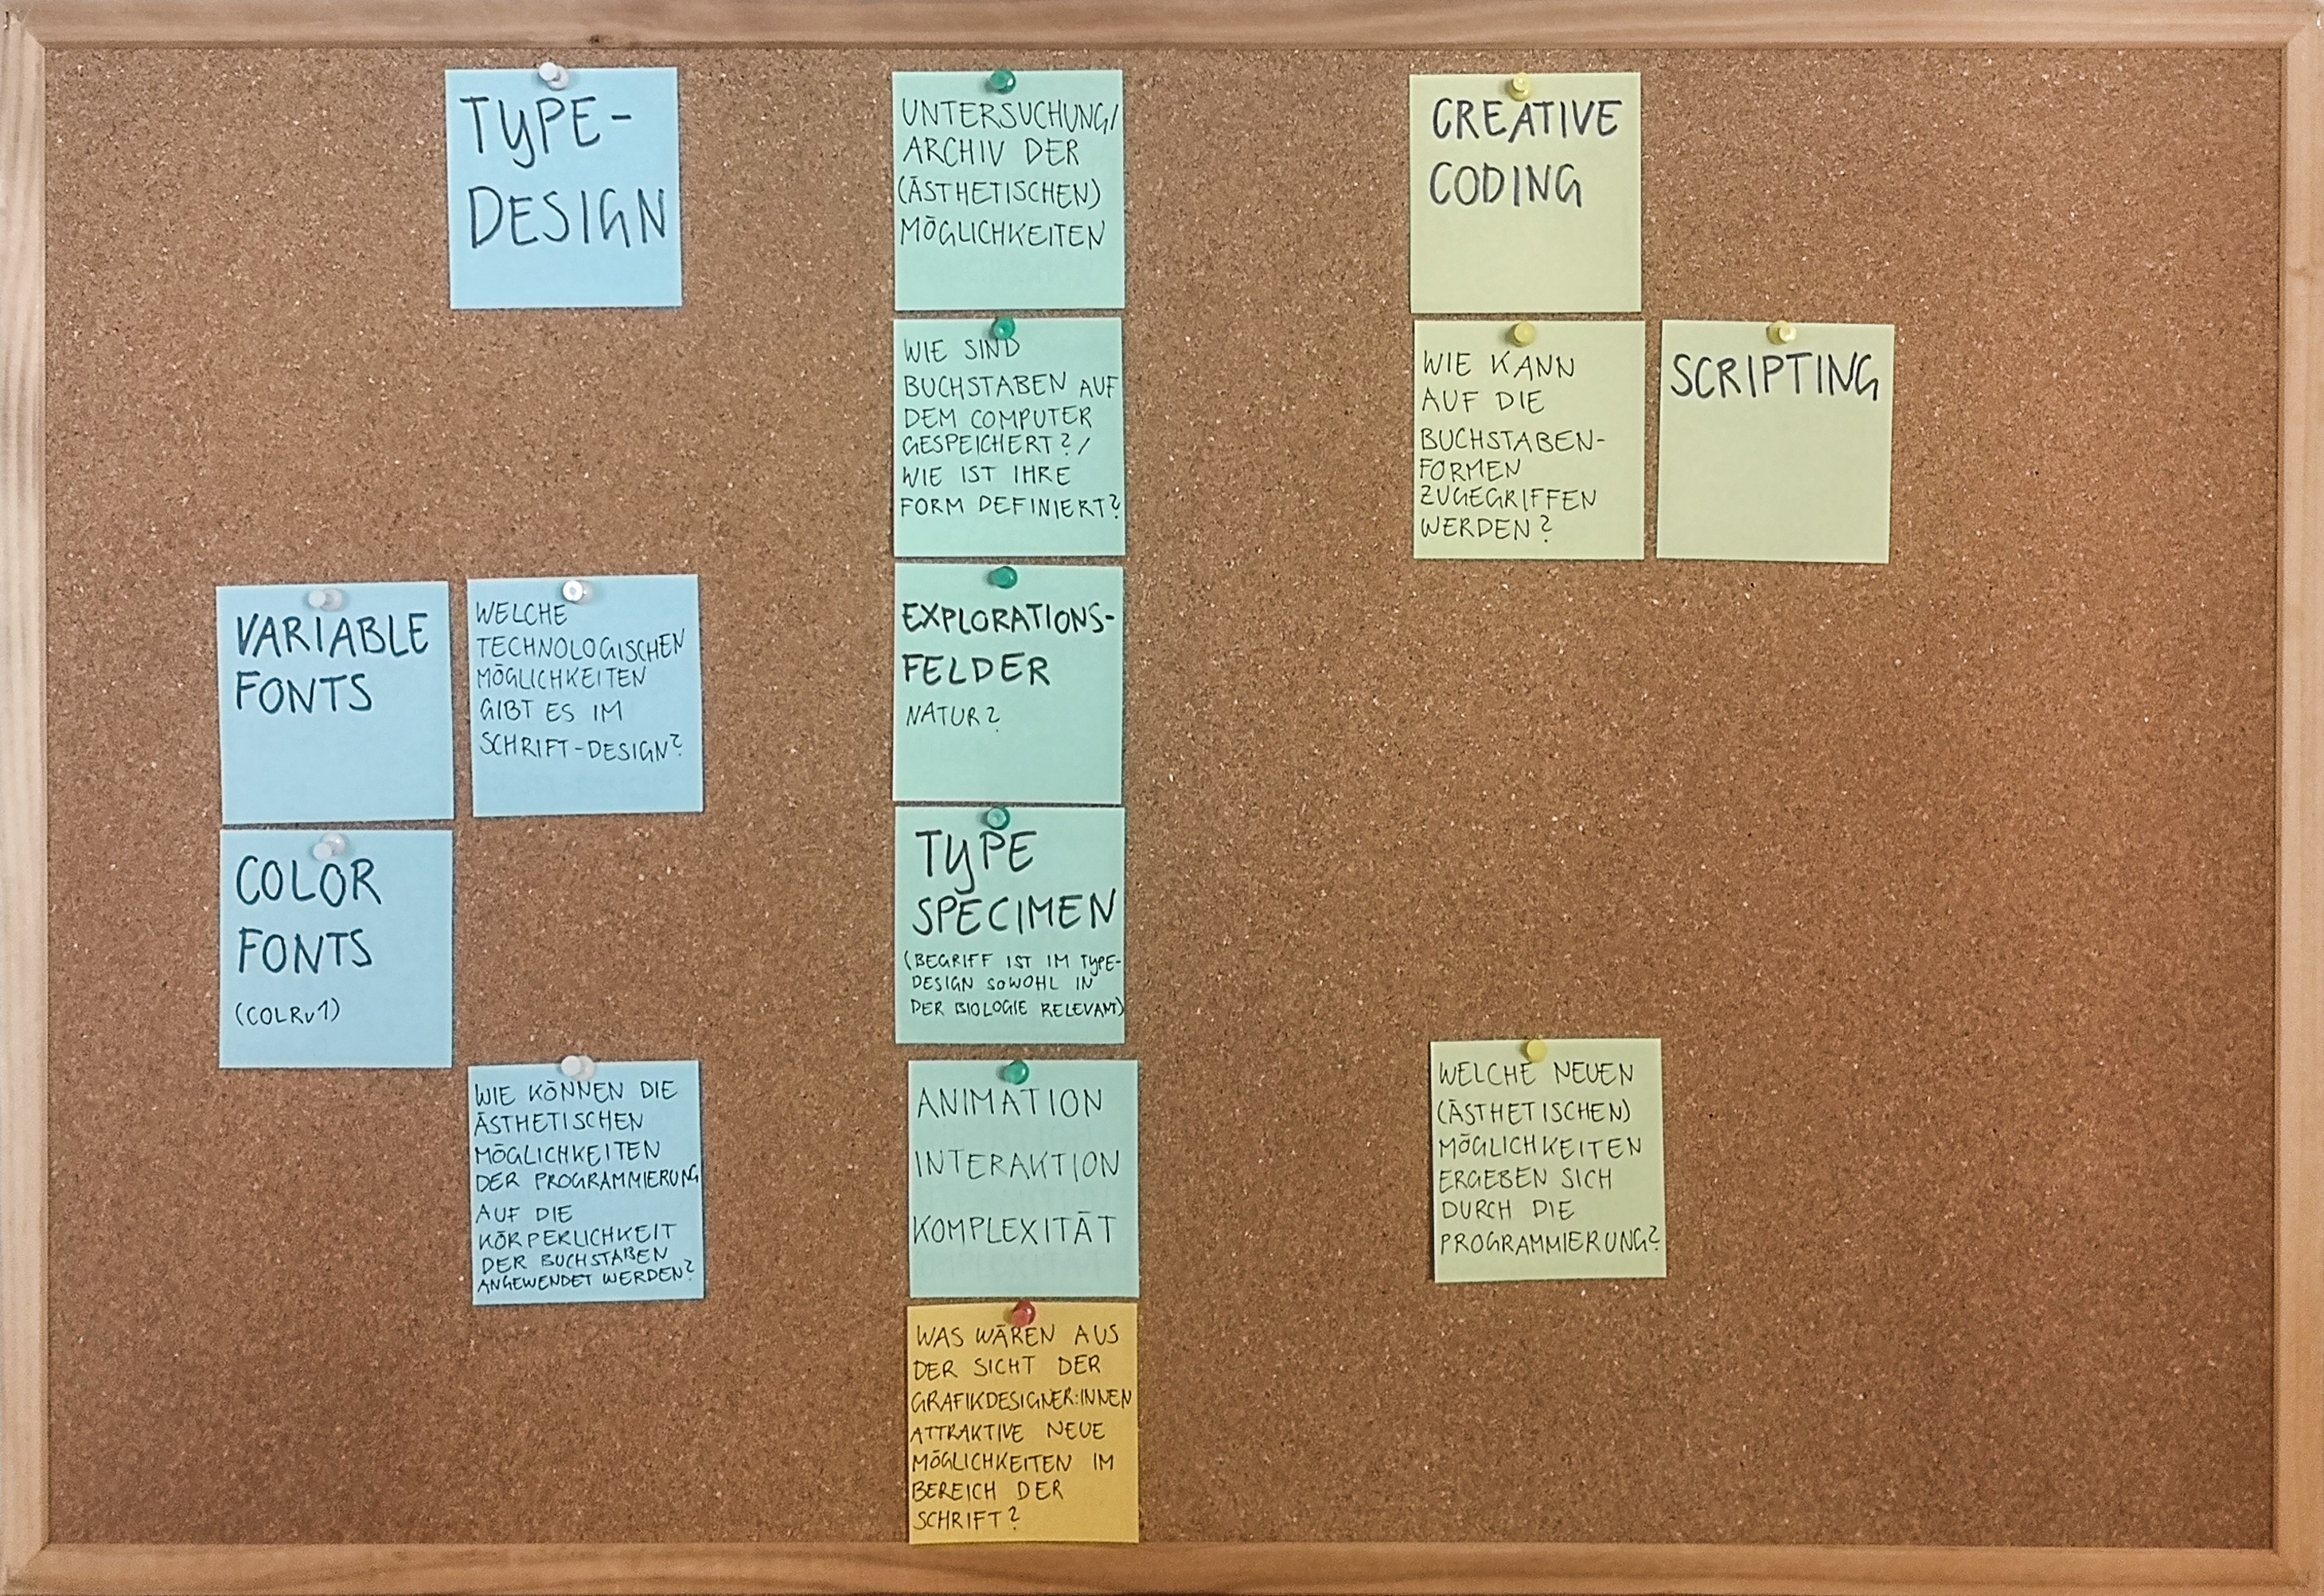 TYPE-
DESIGN
VARIABLE
FONTS
WELCHE
TECHNOLOGISCHEN
MÖGLICHKEITEN
GIBT ES IM
SCHRIFT-DESIGN?
COLOR
FONTS
(COLRv1)
WIE KÖNNEN DIE
ÄSTHETISCHEN
MÖGLICHKEITEN
DER PROGRAMMIERUNG
AUF DIE
KÖRPERLICHKEIT
DER BUCHSTABEN
ANGEWENDET WERDEN?
UNTERSUCHUNG/
ARCHIV DER
(ÄSTHETISCHEN)
MÖGLICHKEITEN
WIE SIND
BUCHSTABEN AUF
DEM COMPUTER
GESPEICHERT? /
WIE IST IHRE
FORM DEFINIERT?
EXPLORATIONS-
FELDER
NATUR?
TYPE
SPECIMEN
(BEGRIFF IST IM TYPE-
DESIGN SOWOHL IN
DER BIOLOGIE RELEVANT)
ANIMATION
INTERAKTION
KOMPLEXITÄT
WAS WÄREN AUS
DER SICHT DER
GRAFIKDESIGNER:INNEN
ATTRAKTIVE NEUE
MÖGLICHKEITEN IM
BEREICH DER
SCHRIFT?
CREATIVE
CODING
WIE KANN
AUF DIE
BUCHSTABEN-
FORMEN
ZUGEGRIFFEN
WERDEN?
SCRIPTING
WELCHE NEUEN
(ÄSTHETISCHEN)
MÖGLICHKEITEN
ERGEBEN SICH
DURCH DIE
PROGRAMMIERUNG?